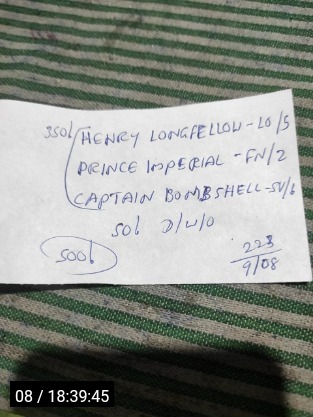 350/ HENRY LONGFELLOW - LO/5
PRINCE IMPERIAL - FN/2
CAPTAIN BOMBSHELL - SU/6
50/ D/W/O
500/
223
9/08
08 / 18:39:45